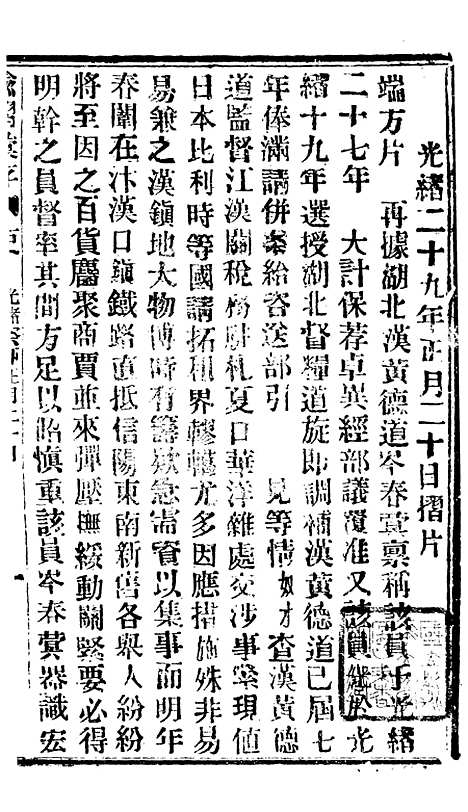 光緒二十九年正月二十日摺片
端方片　再據湖北漢黃德道岑春蓂稟稱該員于光緒
二十七年　大計保荐卓異經部議覆准又該員於光
緒十九年選授湖北督糧道旋即調補漢黃德道已屆七
年俸滿請併案給咨送部引　見等情奴才查漢黃德
道監督江漢關稅務駐札夏口華洋雜處交涉事繁現値
日本比利時等國請拓租界轇轕尤多因應措施殊非易
易兼之漢鎮地大物博時有籌欵急需資以集事而明年
春闈在汴漢口鎮鐵路直抵信陽東南新舊各舉人紛紛
將至因之百貨麕聚商賈並來彈壓撫綏動關緊要必得
明幹之員督率其間方足以昭慎重該員岑春蓂器識宏